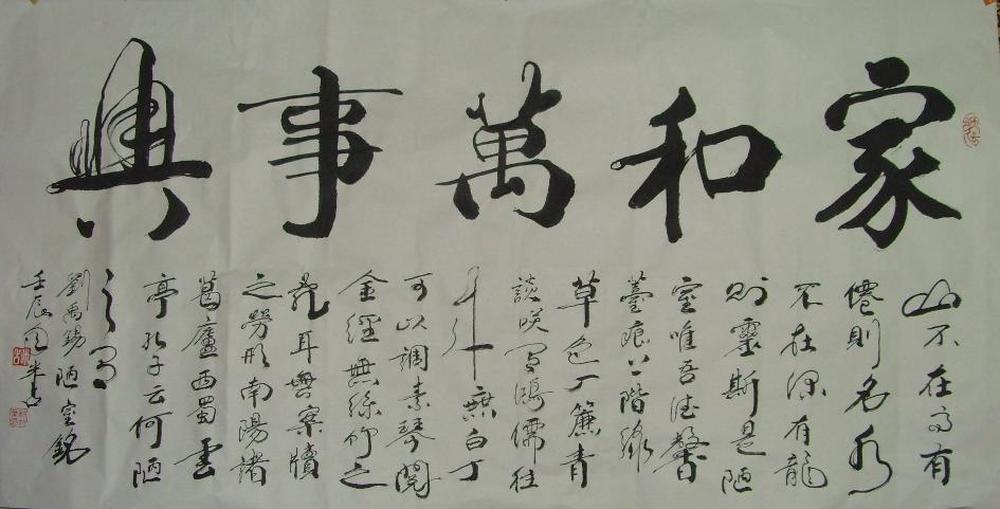 家和萬事興
山不在高有
僊則名水
不在深有龍
則靈斯是陋
室唯吾德馨
薹痕上階綠
草色入簾青
談咲有鴻儒往
来無白丁
可以調素琴閱
金經無絲竹之
亂耳無案牘
之勞形南陽諸
葛廬西蜀雲
亭孔子云何陋
之有
劉禹錫陋室銘
壬辰